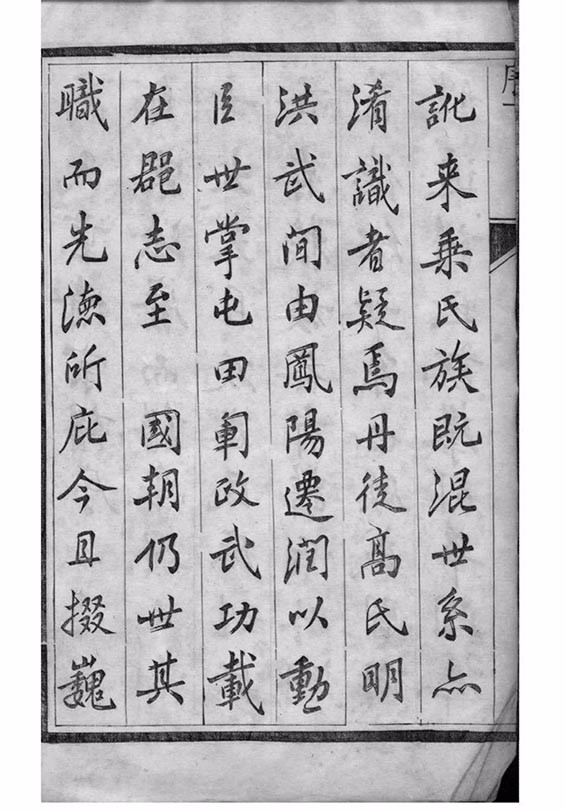 訛来乗氏族既混世系亦
淆識者疑焉丹徒高氏明
洪武间由鳳陽遷润以勲
臣世掌屯田軍政武功載
在郡志至　國朝仍世其
職而先徳所庇今且掇巍